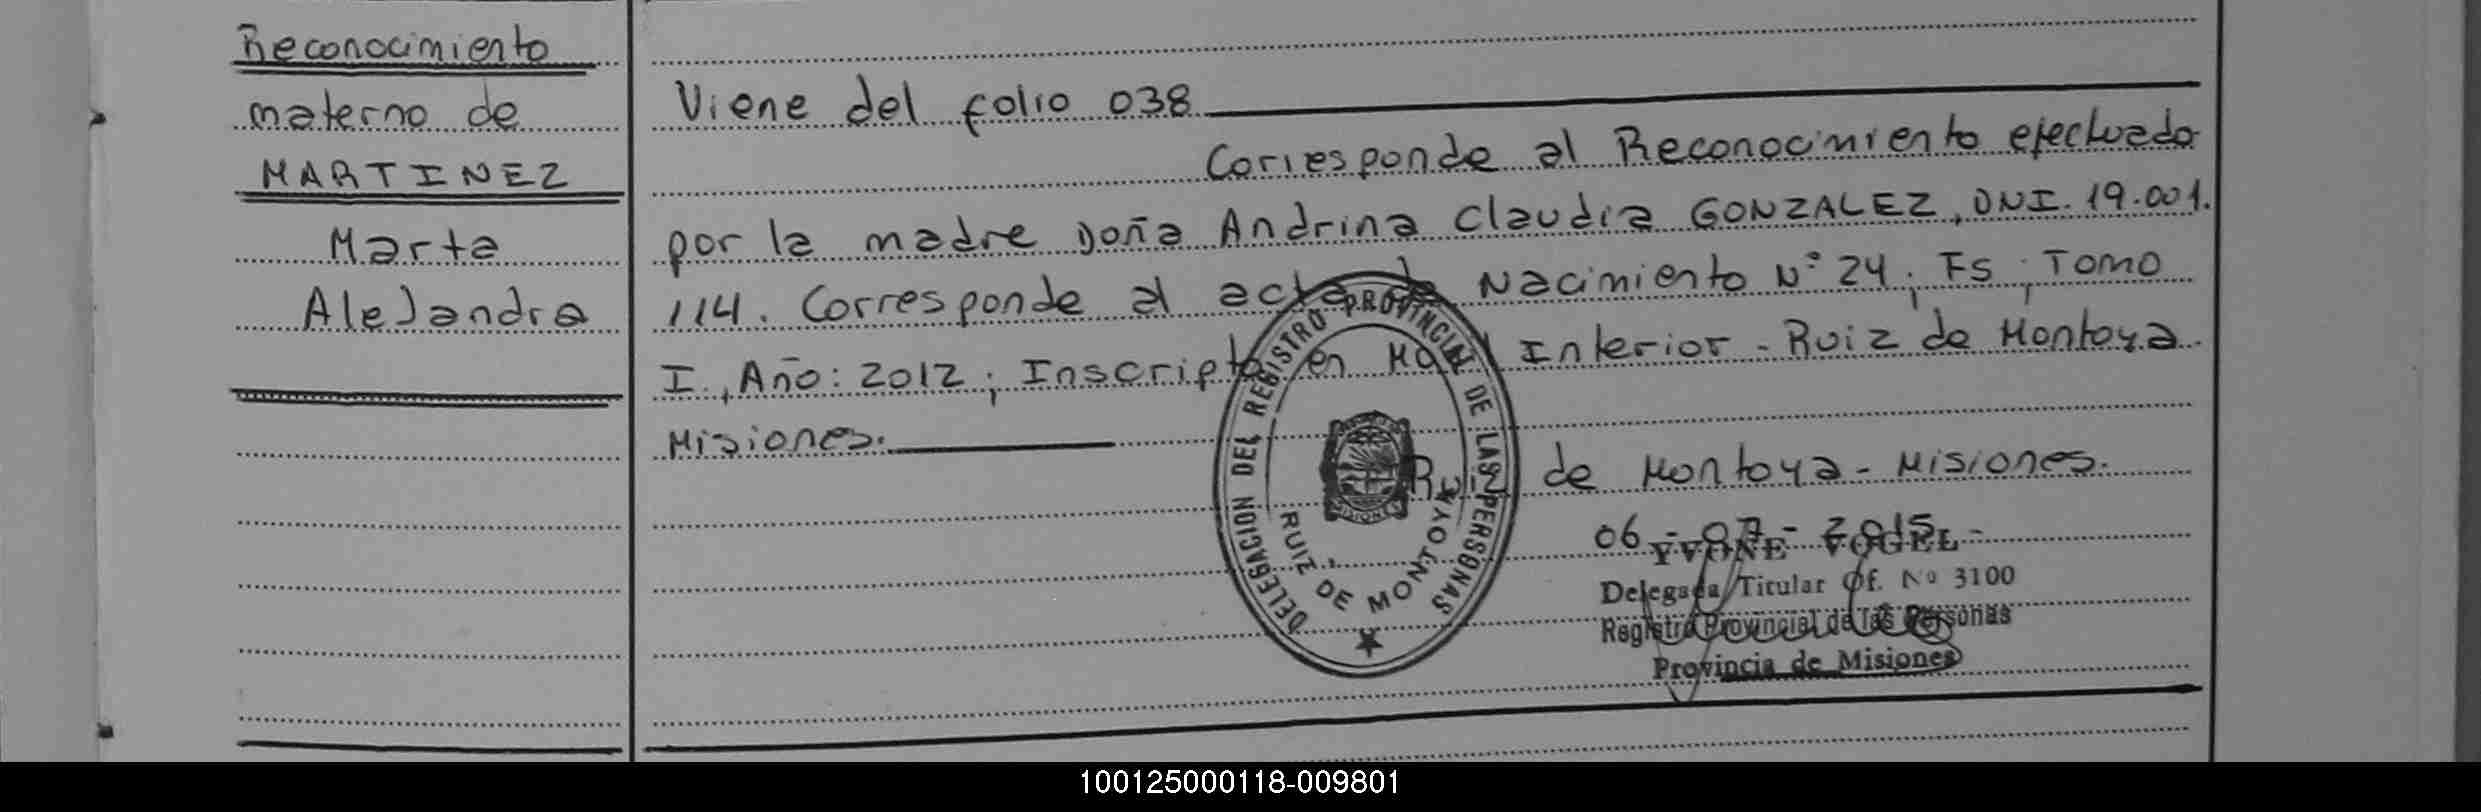 Reconocimiento
materno de
MARTINEZ
Marta
Alejandra
Viene del folio 038
Corresponde al Reconocimiento efectuado
por la madre Doña Andrina Claudia GONZALEZ, DNI. 19.001.
114. Corresponde al acta de Nacimiento N° 24; Fs ; Tomo
I, Año: 2012; Inscripto en Interior - Ruiz de Montoya
Misiones.
Ruiz de Montoya - Misiones.
06 - 07 - 2015 -
YVONE VOGEL
Delegada Titular Of. Nº 3100
Registro Provincial de las Personas
Provincia de Misiones
DELEGACION DEL REGISTRO PROVINCIAL DE LAS PERSONAS
RUIZ DE MONTOYA
MISIONES
100125000118-009801